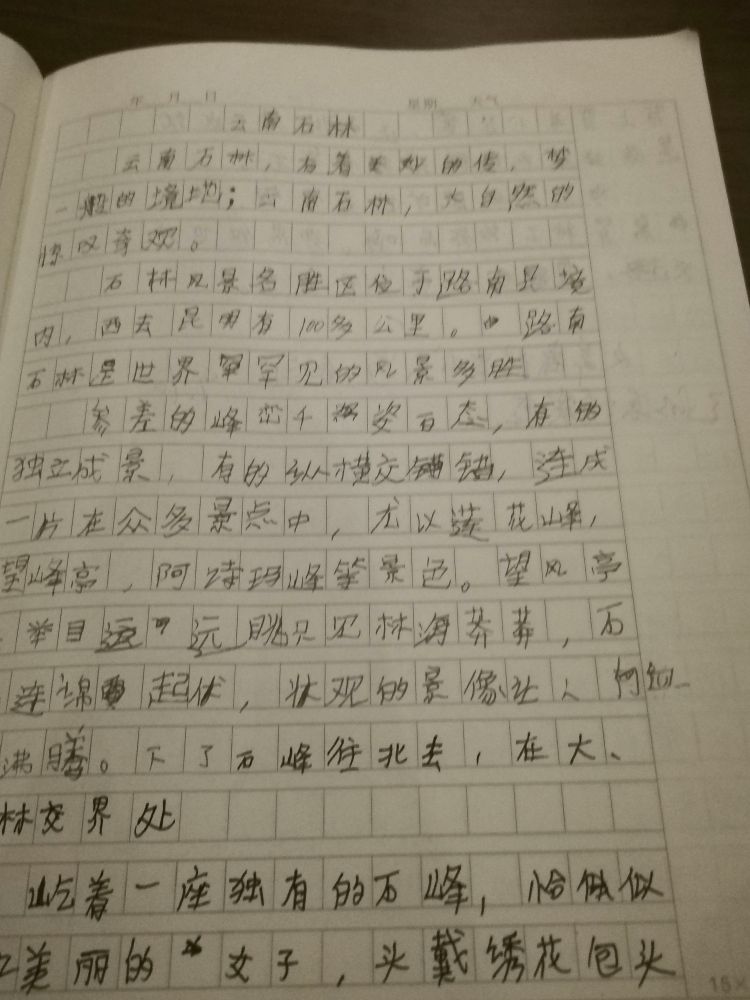 年 月 日 星期 天气
云南石林
云南石林，有着美妙的传，梦
一般的境地；云南石林，大自然的
惊叹奇观。
石林风景名胜区位于路南县境
内，西去昆明有100多公里。路南
石林是世界罕见的风景多胜
参差的峰峦千姿百态，有的
独立成景，有的纵横交错，连成
一片在众多景点中，尤以莲花峰，
望峰亭，阿诗玛峰等景色。望风亭
举目远眺只见林海莽莽，石
连绵起伏，状观的景像让人
沸腾。下了石峰往北去，在大、
林交界处
屹着一座独有的石峰，恰似
美丽的女子，头戴绣花包头